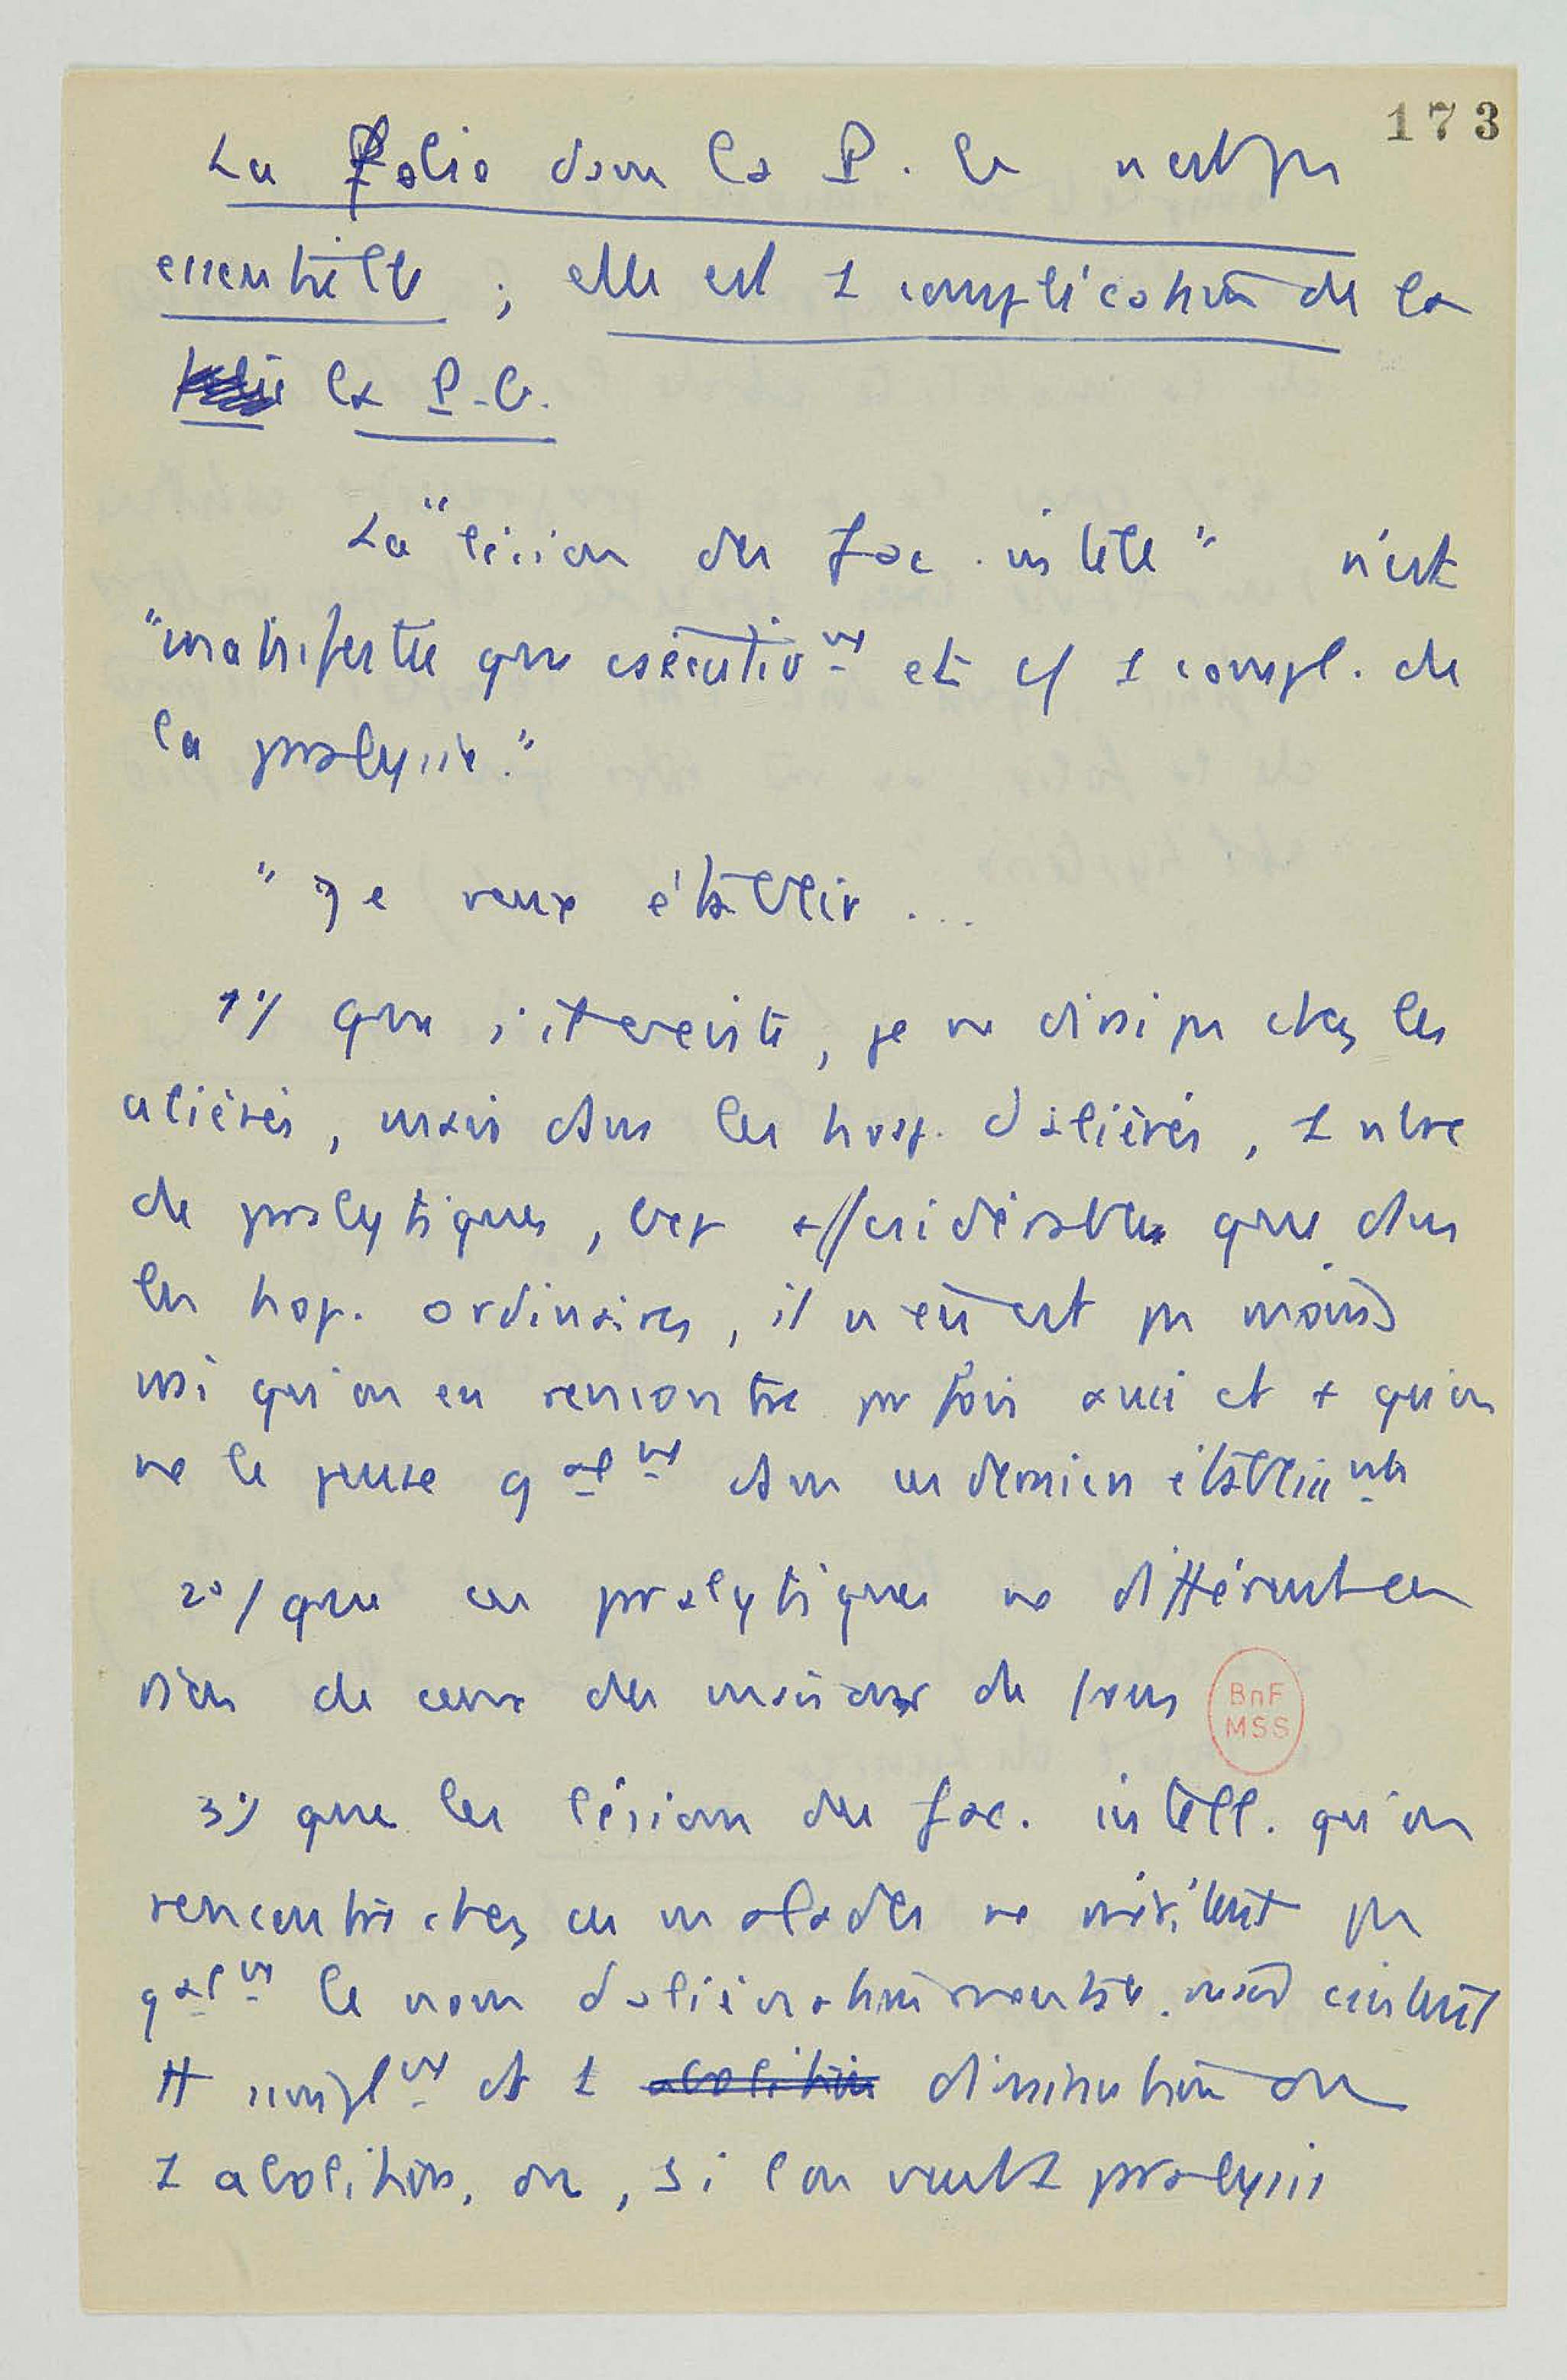 173
La folie dans la P. G n'est pas
essentielle ; elle est 1 complication de la
la P.G.
La "lésion des fac. intell" n'est
"manifestée que csécutivmt et c/ 1 compl. de
la pralysie."
"Je veux établir ...
1°/ que s'il existe, je ne dis si pas chez les
aliénés, mais dans les hop. d'aliénés, 1 nbre
de pralytiques, bcp + considérable que dans
les hop. ordinaires, il n'en est pas moins
vrai qu'on en rencontre parfois aussi et + qu'on
ne le pense galmt dans ces derniers établissmts
2°/ que ces pralytiques ne diffèrent en
rien de ceux des maisons de fous
3°/ que les lésions des fac. intell. qu'on
rencontre chez ces malades ne méritent pas
galmt le nom d'aliénation mentale, mais constituent
tt simplmt et 1 abolition diminution ou
1 abolition, ou, si l'on veut 1 pralysie
BnF
MSS